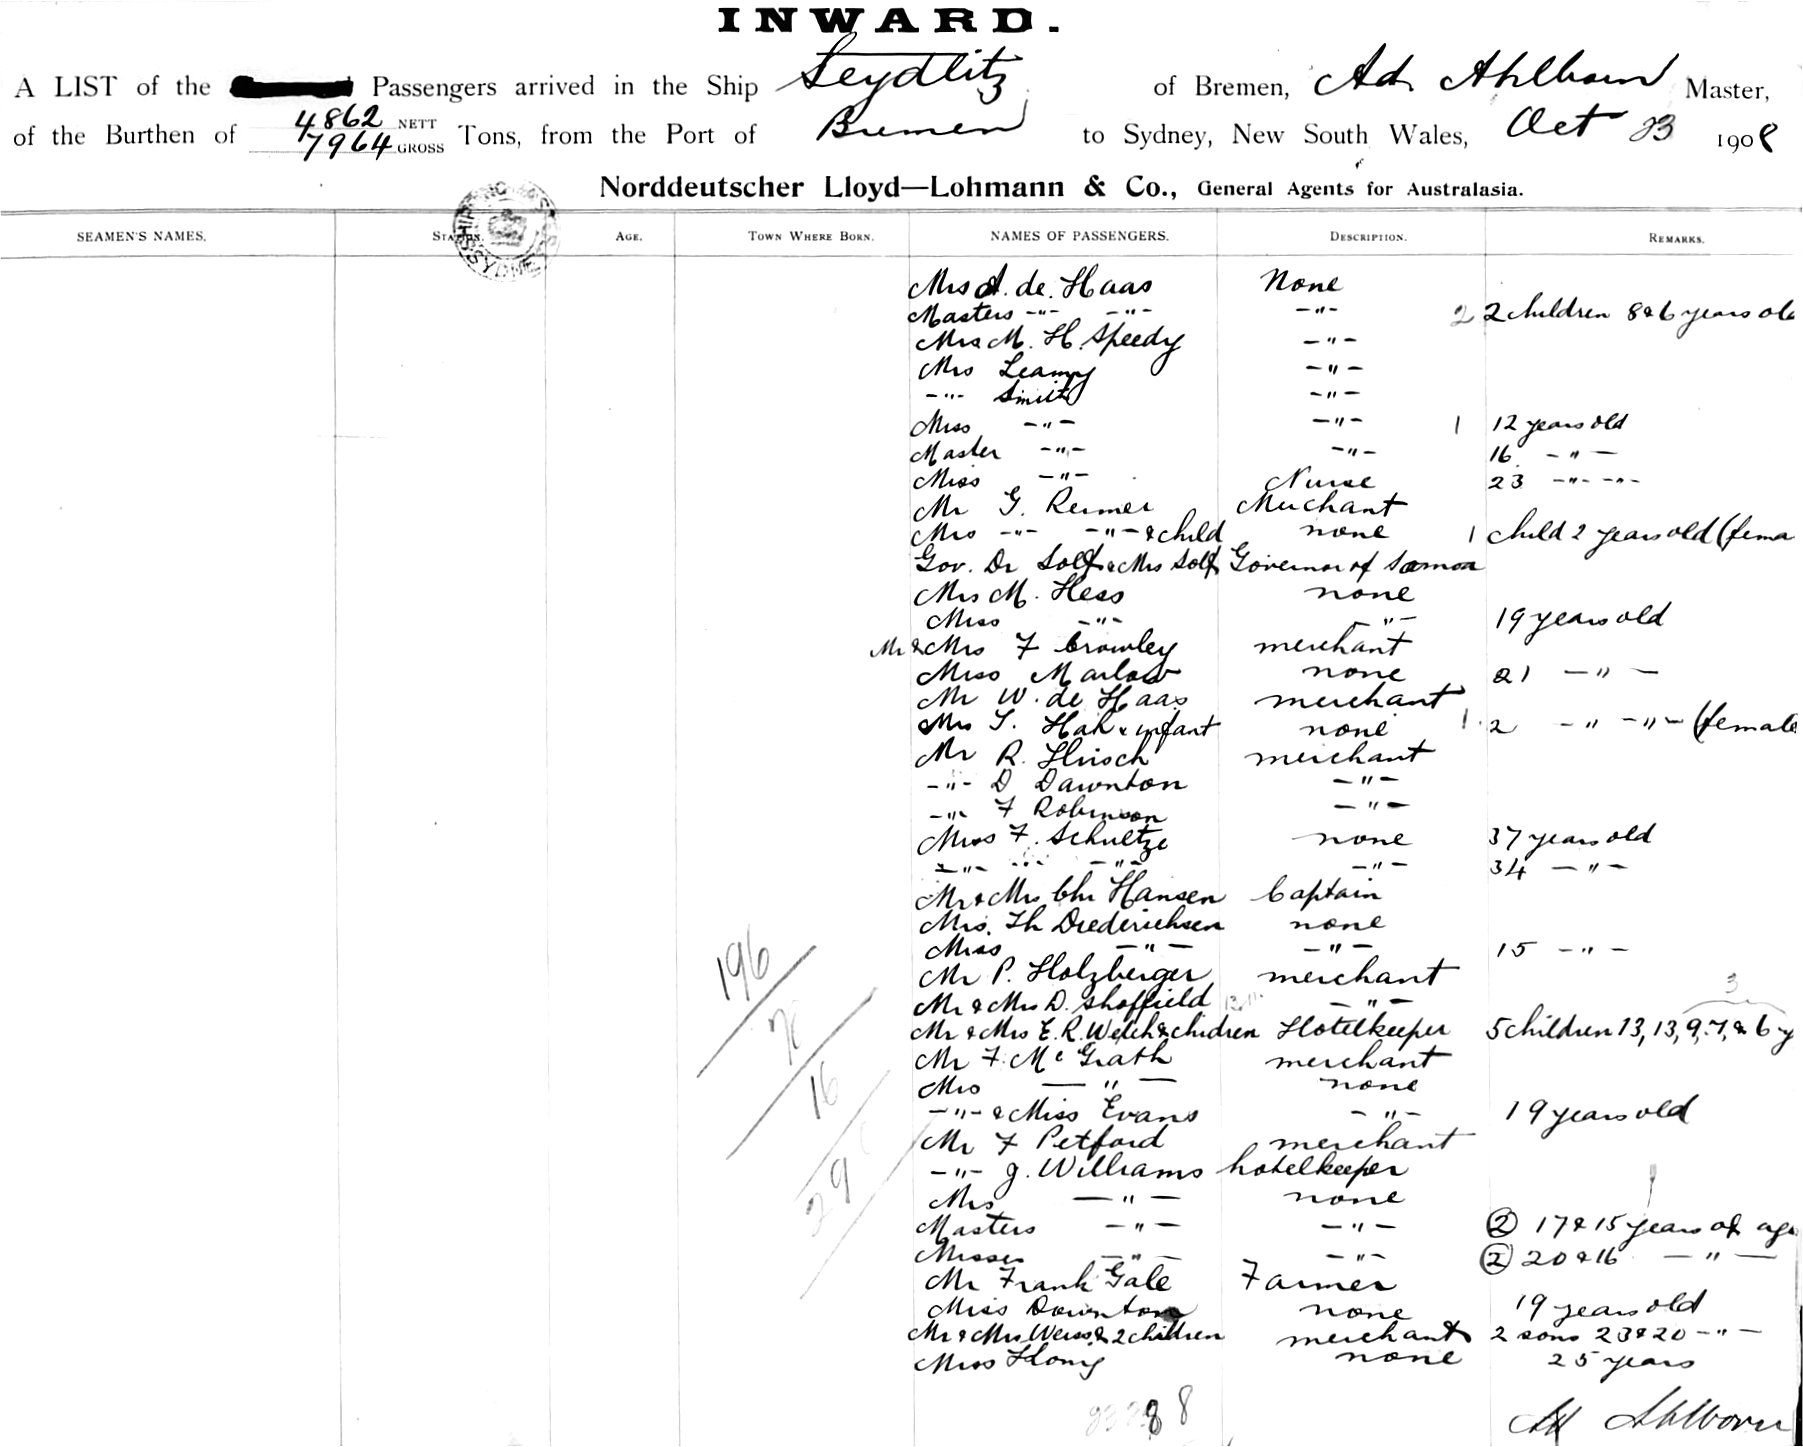 INWARD.
A LIST of the Passengers arrived in the Ship Seydlitz of Bremen, Ad. Ahlborn Master,
of the Burthen of 4862 NETT 7964 GROSS Tons, from the Port of Bremen to Sydney, New South Wales, Oct 23 1908
Norddeutscher Lloyd—Lohmann & Co., General Agents for Australasia.
SEAMEN'S NAMES. STATION. AGE. TOWN WHERE BORN. NAMES OF PASSENGERS. DESCRIPTION. REMARKS.
SYDNEY
Mrs A. de. Haas None
Masters -"- -"- -"- 2 2 children 8 & 6 years old
Mrs M. H. Speedy -"-
Mrs Leamy -"-
-"- Smith -"-
Miss -"- -"- 1 12 years old
Master -"- -"- 16 -"-
Miss -"- Nurse 23 -"- -"-
Mr G. Reimer Merchant
Mrs -"- -"- & child none 1 child 2 years old (fema
Gov. Dr Solf & Mrs Solf Governor of Samoa
Mrs M. Hess none
Miss -"- -"- 19 years old
Mr & Mrs F Crowley merchant
Miss Marlow none 21 -"-
Mr W. de Haas merchant
Mrs T. Hah & infant none 1 2 -"- -"- (female
Mr R. Hirsch merchant
-"- D Dawnton -"-
-"- F Robinson -"-
Miss F. Schultze none 37 years old
-"- -"- -"- -"- 34 -"-
Mr & Mrs Chr Hansen Captain
Mrs. Th Diederichsen none
Miss -"- -"- 15 -"-
Mr P. Holzberger merchant
Mr & Mrs D. Shoffield -"-
3
Mr & Mrs E. R. Welch & chidren Hotelkeeper 5 children 13, 13, 9, 7, & 6 y
Mr F. Mc Grath merchant
Mrs -"- none
-"- & Miss Evans -"- 19 years old
Mr F Petford merchant
-"- J. Williams hotelkeeper
Mrs -"- none
Masters -"- -"- 2 17 & 15 years of age
Misses -"- -"- 2 20 & 16 -"-
Mr Frank Gale Farmer
Miss Downton none 19 years old
Mr & Mrs Weiss & 2 children merchant 2 sons 23 & 20 -"-
Miss Honig none 25 years
196
78
16
29
8 8
Ad Ahlborn